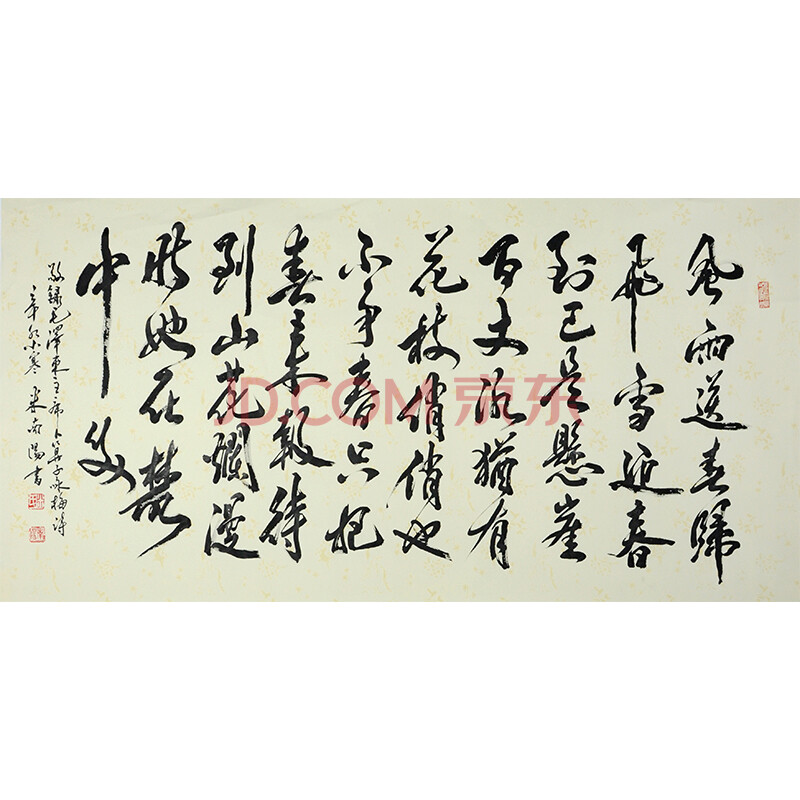 風雨送春歸
飛雪迎春
到已是懸崖
百丈冰猶有
花枝俏俏也
不争春只把
春来報待
到山花爛漫
時她在叢
中笑
敬錄毛澤東主席卜算子咏梅詩
辛卯小寒 米南陽書
JD.COM 京东